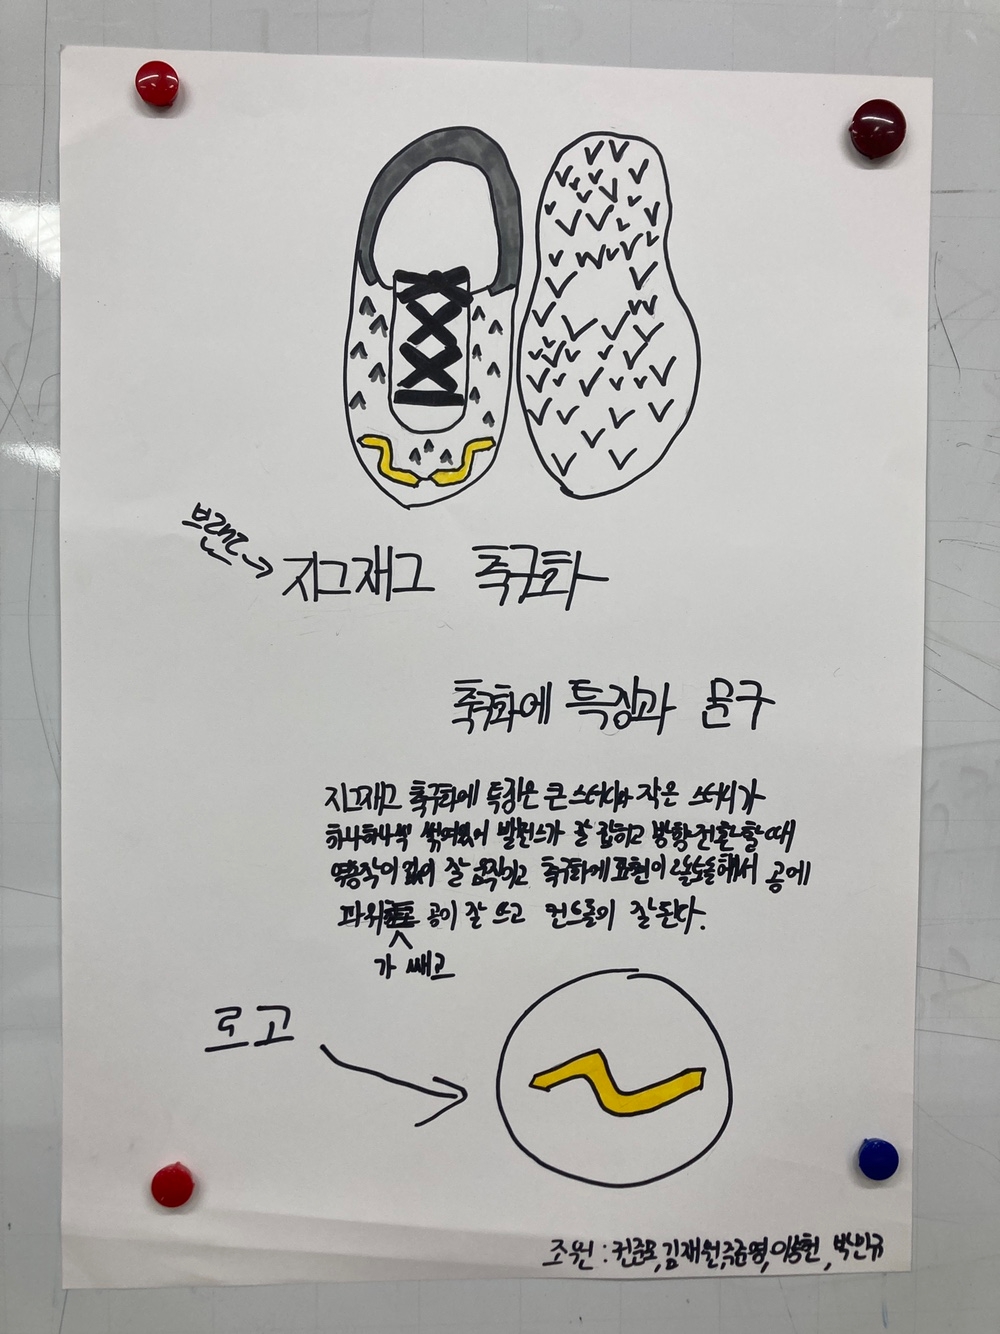 브랜드
지그재그 축구화
축구화에 특징과 문구
지그재그 축구화에 특징은 큰 스터디와 작은 스터디가
하나하나씩 쌓여있어 발란스가 잘 잡히고 방향전환할때
역동작이 없이 잘 움직이고 축구화에 표현이 울퉁불퉁해서 공에
파워 공이 잘 쓰고 컨트롤이 잘된다.
가 쌔고
로고
조원 : 김재원, 박민규